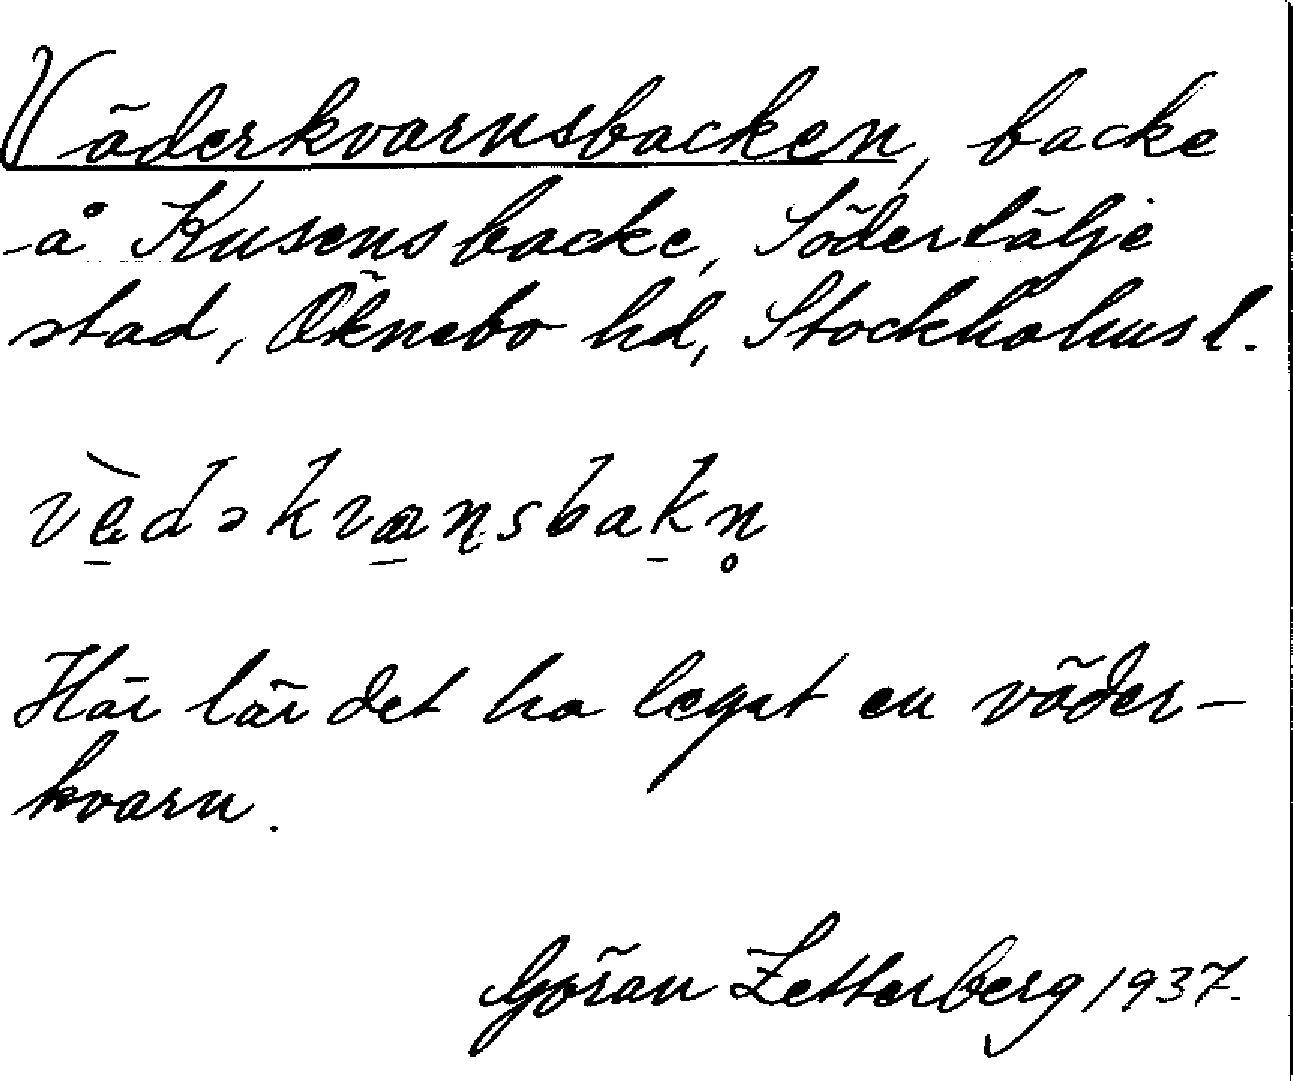 Väderkvarnsbacken, backe
å Kusens backe, Södertälje
stad, Öknebo hd, Stockholms l.
vèdəkvaɳsbakn̥
Här lär det ha legat en väder-
kvarn.
Göran Zetterberg 1937.